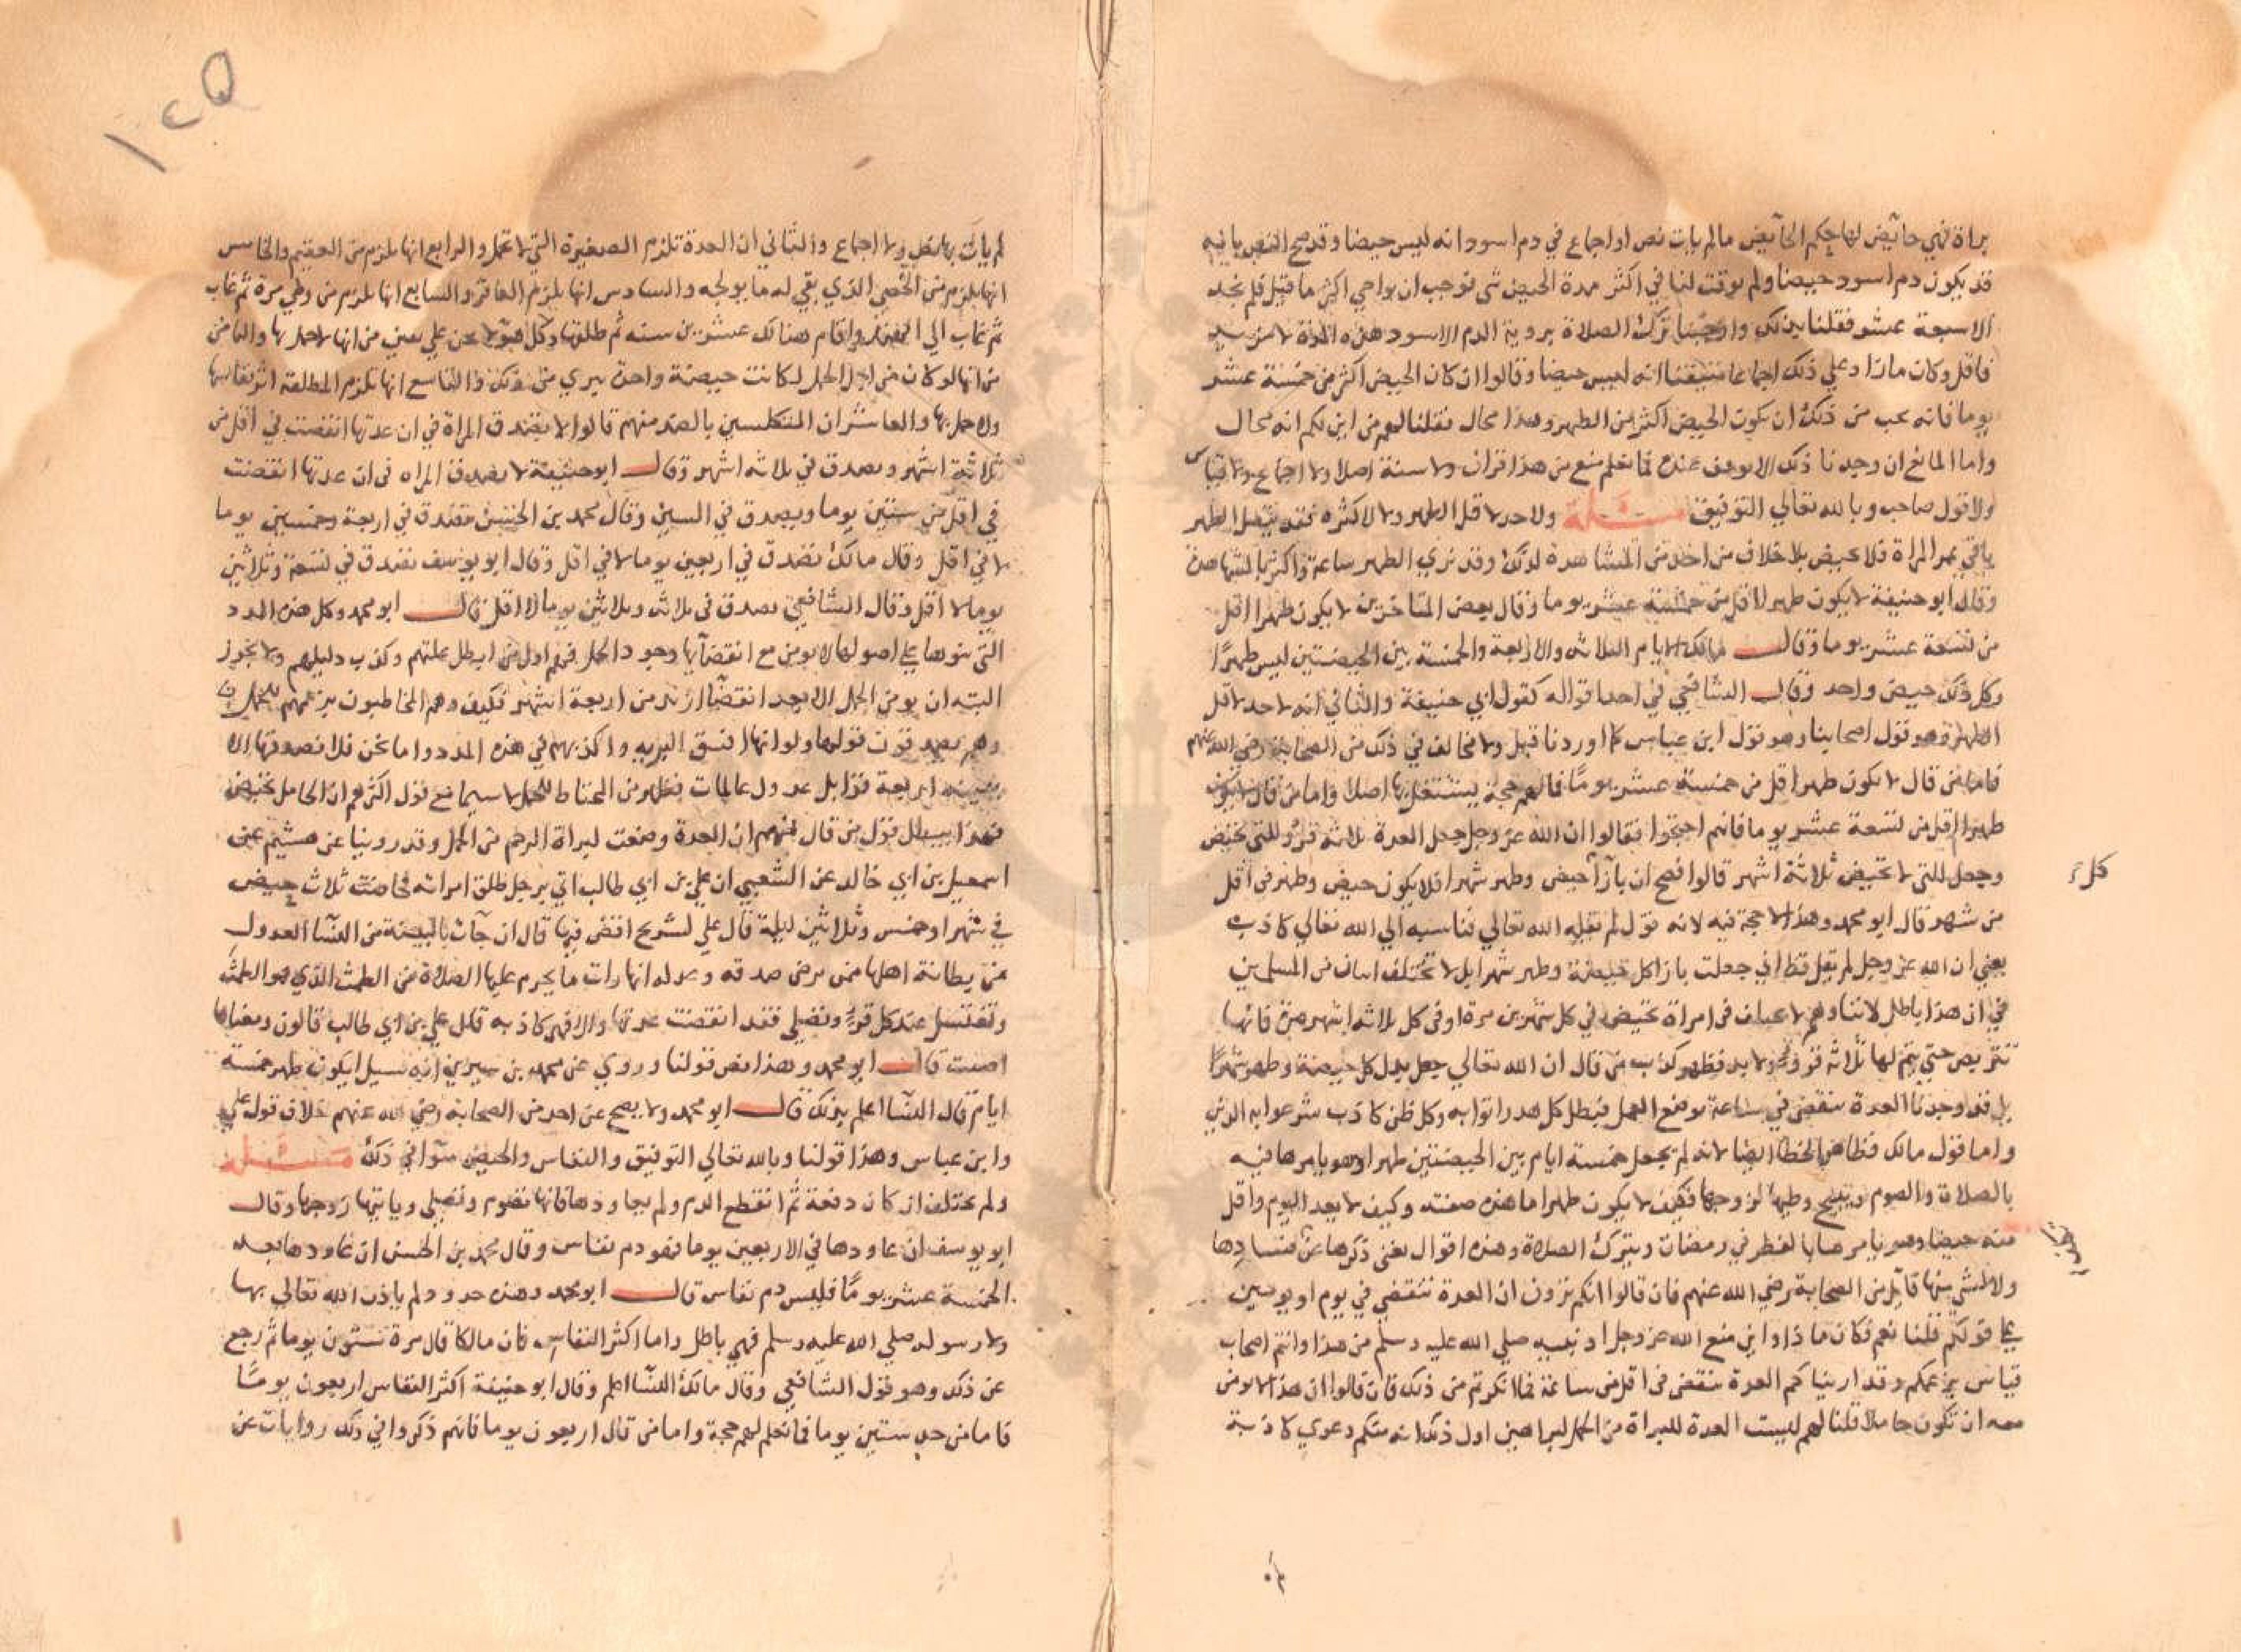 براة فهي حائض لها حكم الحائض ما لم يات نص او اجماع في دم اسود انه ليس حيضا وقد صح النص بانه
قد يكون دم اسود حيضا ولم يوقت لنا في اكثر مدة الحيض شي فوجب ان يراعي اكثر ما قيل فلم نجد
الا سبعة عشر فقلنا بذلك واوجبنا ترك الصلاة بروية الدم الاسود هذه المدة لا مزيد
فاقل وكان ما زاد علي ذلك اجماعا متيقنا انه ليس حيضا وقالوا ان كان الحيض اكثر من خمسة عشر
يوما فانه يجب من ذلك ان يكون الحيض اكثر من الطهر وهذا محال فقلنا لهم من اين لكم انه محال
واما المانع ان وجدنا ذلك الا يوقف عنده فما نعلم منع من هذا قران ولا سنة اصلا ولا اجماع ولا قياس
ولا قول صاحب وبالله تعالي التوفيق مسئلة ولا حد لاقل الطهر ولا لاكثره فقد يتصل الطهر
باقي عمر المراة فلا تحيض بلا خلاف من احد مع المشاهدة لذلك وقد نري الطهر ساعة واكثر بالمشاهدة
وقال ابو حنيفة لا يكون طهر لاقل من خمسة عشر يوما وقال بعض المتاخرين لا يكون طهرا اقل
من تسعة عشر يوما وقال مالك الايام الثلاثه والاربعة والخمسة بين الحيضتين ليس طهرا
وكل ذلك حيض واحد وقال الشافعي في احد اقواله كقول ابي حنيفة والثاني انه لا حد لاقل
الطهر وهو قول اصحابنا وهو قول ابن عباس كما اوردنا قبل ولا مخالف في ذلك من الصحابة رضي الله عنهم
فاما من قال لا يكون طهرا اقل من خمسة عشر يوما فما لهم حجة يشتغل بها اصلا واما من قال لا يكون
طهرا اقل من تسعة عشر يوما فانهم احتجوا فقالوا ان الله عز وجل جعل العدة ثلاثه قرو للتي تحيض
وجعل للتي لا تحيض ثلاثة اشهر قالوا فصح ان بازآ حيض وطهر شهرا فلا يكون حيض وطهر في اقل
كل
من شهر قال ابو محمد وهذا لا حجة فيه لانه قول لم يقله الله تعالي فناسبه الي الله تعالي كاذب
يعني ان الله عز وجل لم يقل قط اني جعلت بازا كل حيضة وطهر شهرا بل لا يختلف اثنان من المسلمين
في ان هذا باطل لاننا وهم لا نختلف في امراة تحيض في كل شهرين مرة او في كل ثلاثه اشهر مرة فانها
تتربص حتي يتم لها ثلاثه قرو ولا بد فظهر كذب من قال ان الله تعالي جعل بدل كل حيضة وطهر شهرا
بل قد وجدنا العدة تنقضي في ساعة بوضع الحمل فبطل كل هدر اتوا به وكل ظن كاذب شرعوا به الدين
واما قول مالك فظاهر الخطا ايضا لانه لم يجعل خمسة ايام بين الحيضتين طهرا وهو يامرها فيه
بالصلاة والصوم ويبيح وطيها لزوجها فكيف لا يكون طهرا ما هذه صفته وكيف لا يعد اليوم واقل
منه حيضا وهو يامرها بالفطر في رمضان وبترك الصلاة وهذه اقوال يغني ذكرها عن فسادها
ولا لشي منها قائل من الصحابة رضي الله عنهم فان قالوا انكم ترون ان العدة تنقضي في يوم او يومين
علي قولكم قلنا نعم فكان ما ذا واين منع الله عز وجل او نبيه صلي الله عليه وسلم من هذا وانتم اصحاب
قياس بزعمكم وقد اريناكم العدة تنقضي في اقل من ساعة فما انكرتم من ذلك فان قالوا ان هذا لا يومن
معه ان تكون حاملا قلنا لهم ليست العدة للبراة من الحمل لبراهين اول ذلك انه منكم دعوي كاذبة
١٢٥
لم يات بها نص ولا اجماع والثاني ان العدة تلزم الصغيرة التي لا تحمل والرابع انها تلزم من العقيم والخامس
انها تلزم من الخصي الذي بقي له ما يولجه والسادس انها تلزم العاقر والسابع انها تلزم من وطي مرة ثم غاب
ثم غاب الي الهند واقام هنالك عشرين سنه ثم طلقها وكل هولا نحن علي يقين من انها لا حمل بها والثامن
من انها لو كان من اجل الحمل لكانت حيضة واحدة تبري من ذلك والتاسع انها تلزم المطلقه اثر نفاسها
ولا حمل بها والعاشر ان المتكلسين بالضد منهم قالوا لا تصدق المراة في ان عدتها انقضت في اقل من
ثلاثة اشهر وتصدق في ثلاثه اشهر وقال ابو حنيفة لا تصدق المراه في ان عدتها انقضت
في اقل من ستين يوما ويصدق في الستين وقال محمد بن الحسن تصدق في اربعة وخمسين يوما
لا في اقل وقال مالك تصدق في اربعين يوما لا في اقل وقال ابو يوسف تصدق في تسعة وثلاثين
يوما لا اقل وقال الشافعي تصدق في ثلاثه وثلاثين يوما لا اقل قال ابو محمد وكل هذه المدد
التي بنوها علي اصولها لا يومن مع انقضائها وجود الحمل فهم اول من ابطل علتهم وكذب دليلهم ولا يجوز
البته ان يومن الحمل الا بعد انقضا ازيد من اربعة اشهر فكيف وهم المحتاطون بزعمهم للحمل
وهم يصدقون قولها ولو انها افسق البريه واكذبهم في هذه المدد واما نحن فلا نصدقها الا
ببينه اربعة قوابل عدول عالمات فظهر من المحتاط للحمل لا سيما مع قول اكثرهم ان الحامل تحيض
فهذا يبطل قول من قال منهم ان العدة وضعت لبراة الرحم من الحمل وقد روينا عن هشيم عن
اسمعيل بن ابي خالد عن الشعبي ان علي بن ابي طالب اتي برجل طلق امراته فحاضت ثلاث حيض
في شهر او خمس وثلاثين ليلة قال علي لشريح اقض فيها قال ان جآت بالبينة من النسآ العدول
من بطانة اهلها ممن يرضي صدقه وعدله انها رات ما يحرم عليها الصلاة من الطمث الذي هو الطمث
وتغتسل عند كل قرو وتصلي فقد انقضت عدتها والا فهي كاذبه قال علي بن ابي طالب قالون ومعناها
اصبت قال ابو محمد وهذا نص قولنا وروي عن محمد بن سيرين انه سيل ايكون طهر خمسة
ايام قال النسآ اعلم بذلك قال ابو محمد ولا يصح عن احد من الصحابة رضي الله عنهم خلاف قول علي
وابن عباس وهذا قولنا وبالله تعالي التوفيق والنفاس والحيض سوآ في ذلك مسئلة
ولم يختلف ان كان دفعة ثم انقطع الدم ولم يعاودها فانها تصوم وتصلي وياتيها زوجها وقال
ابو يوسف ان عاودها في الاربعين يوما فهو دم نفاس وقال محمد بن الحسن ان عاودها بعد
الخمسة عشر يوما فليس دم نفاس قال ابو محمد وهذه حدود لم ياذن الله تعالي بها
ولا رسوله صلي الله عليه وسلم فهي باطل واما اكثر النفاس فان مالكا قال مرة ستون يوما ثم رجع
عن ذلك وهو قول الشافعي وقال مالك النسآ اعلم وقال ابو حنيفة اكثر النفاس اربعون يوما
فاما من حد ستين يوما فما نعلم لهم حجة واما من قال اربعون يوما فانهم ذكروا في ذلك روايات عن